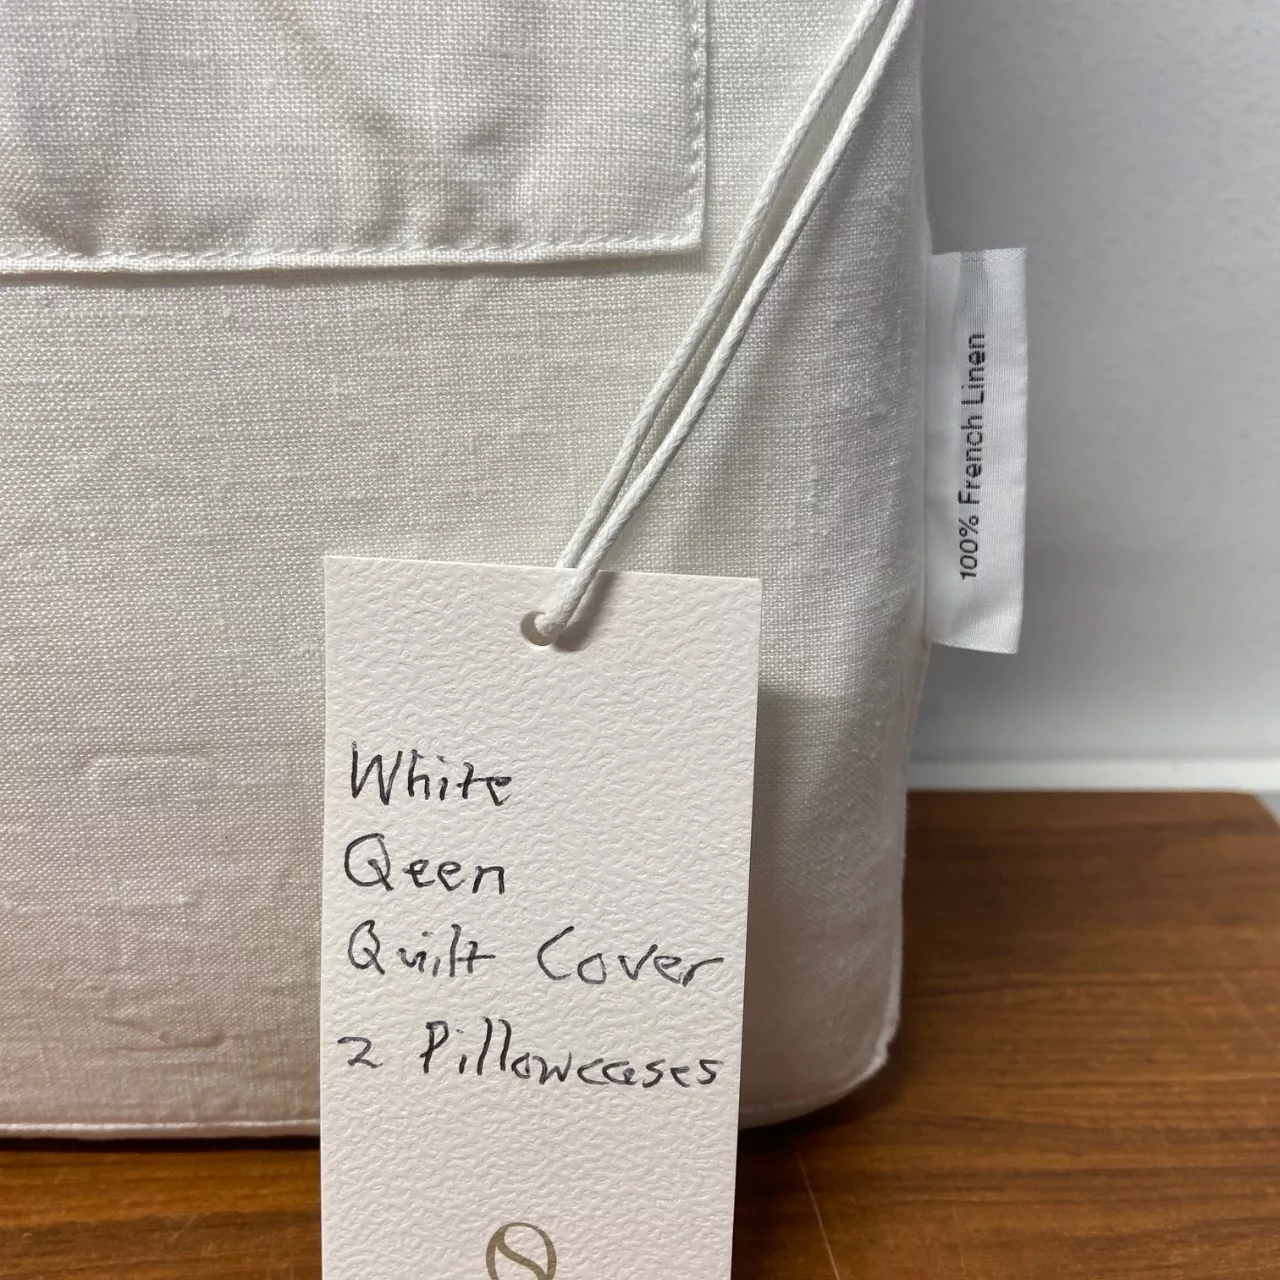 White
Qeen
Quilt Cover
2 Pillowcases
100% French Linen